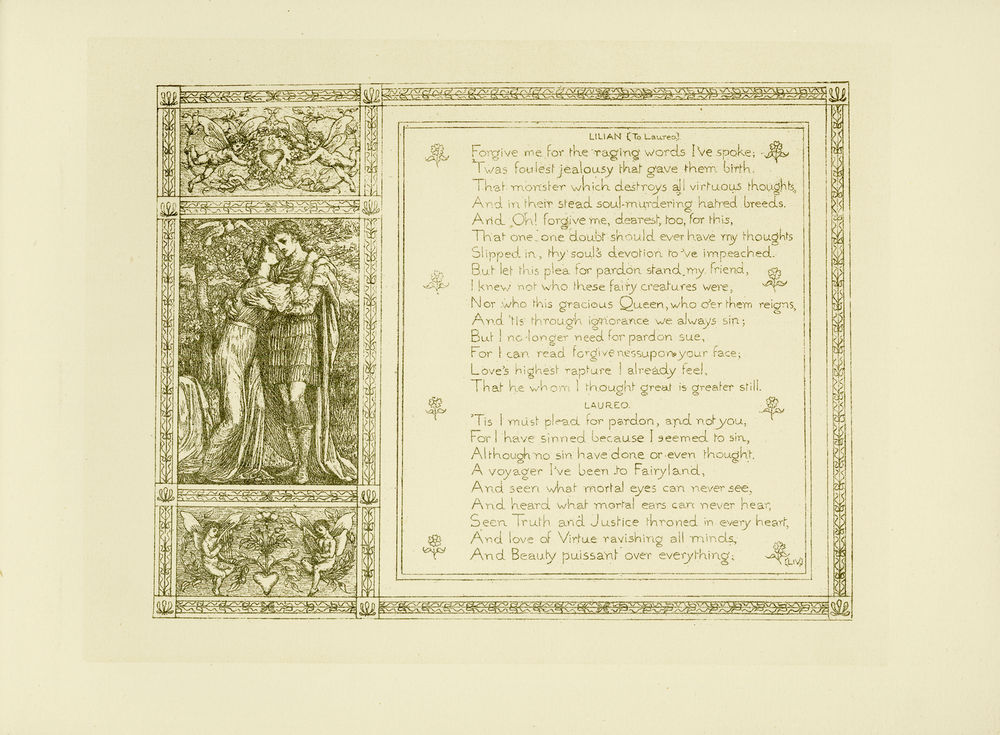 LILIAN (To Laureo).
Forgive me for the raging words I've spoke;
'Twas foulest jealousy that gave them birth.
That monster which destroys all virtuous thoughts,
And in their stead soul-murdering hatred breeds.
And Oh! forgive me, dearest, too, for this,
That one, one doubt should ever have my thoughts
Slipped in, thy soul's devotion to've impeached.
But let this plea for pardon stand, my friend,
I knew not who these fairy creatures were,
Nor who this gracious Queen, who o'er them reigns,
And 'tis through ignorance we always sin;
But I no longer need for pardon sue,
For I can read forgiveness upon your face;
Love's highest rapture I already feel,
That he whom I thought great is greater still.
LAUREO.
'Tis I must plead for pardon, and not you,
For I have sinned because I seemed to sin,
Although no sin have done or even thought.
A voyager I've been to Fairyland,
And seen what mortal eyes can never see,
And heard what mortal ears can never hear,
Seen Truth and Justice throned in every heart,
And love of Virtue ravishing all minds,
And Beauty puissant over everything;
(LIV)